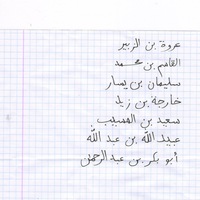 عروة بن الزبير
القاسم بن محمد
سليمان بن يسار
خارجة بن زيد
سعيد بن المسيب
عبيد الله بن عبد الله
أبو بكر بن عبد الرحمن